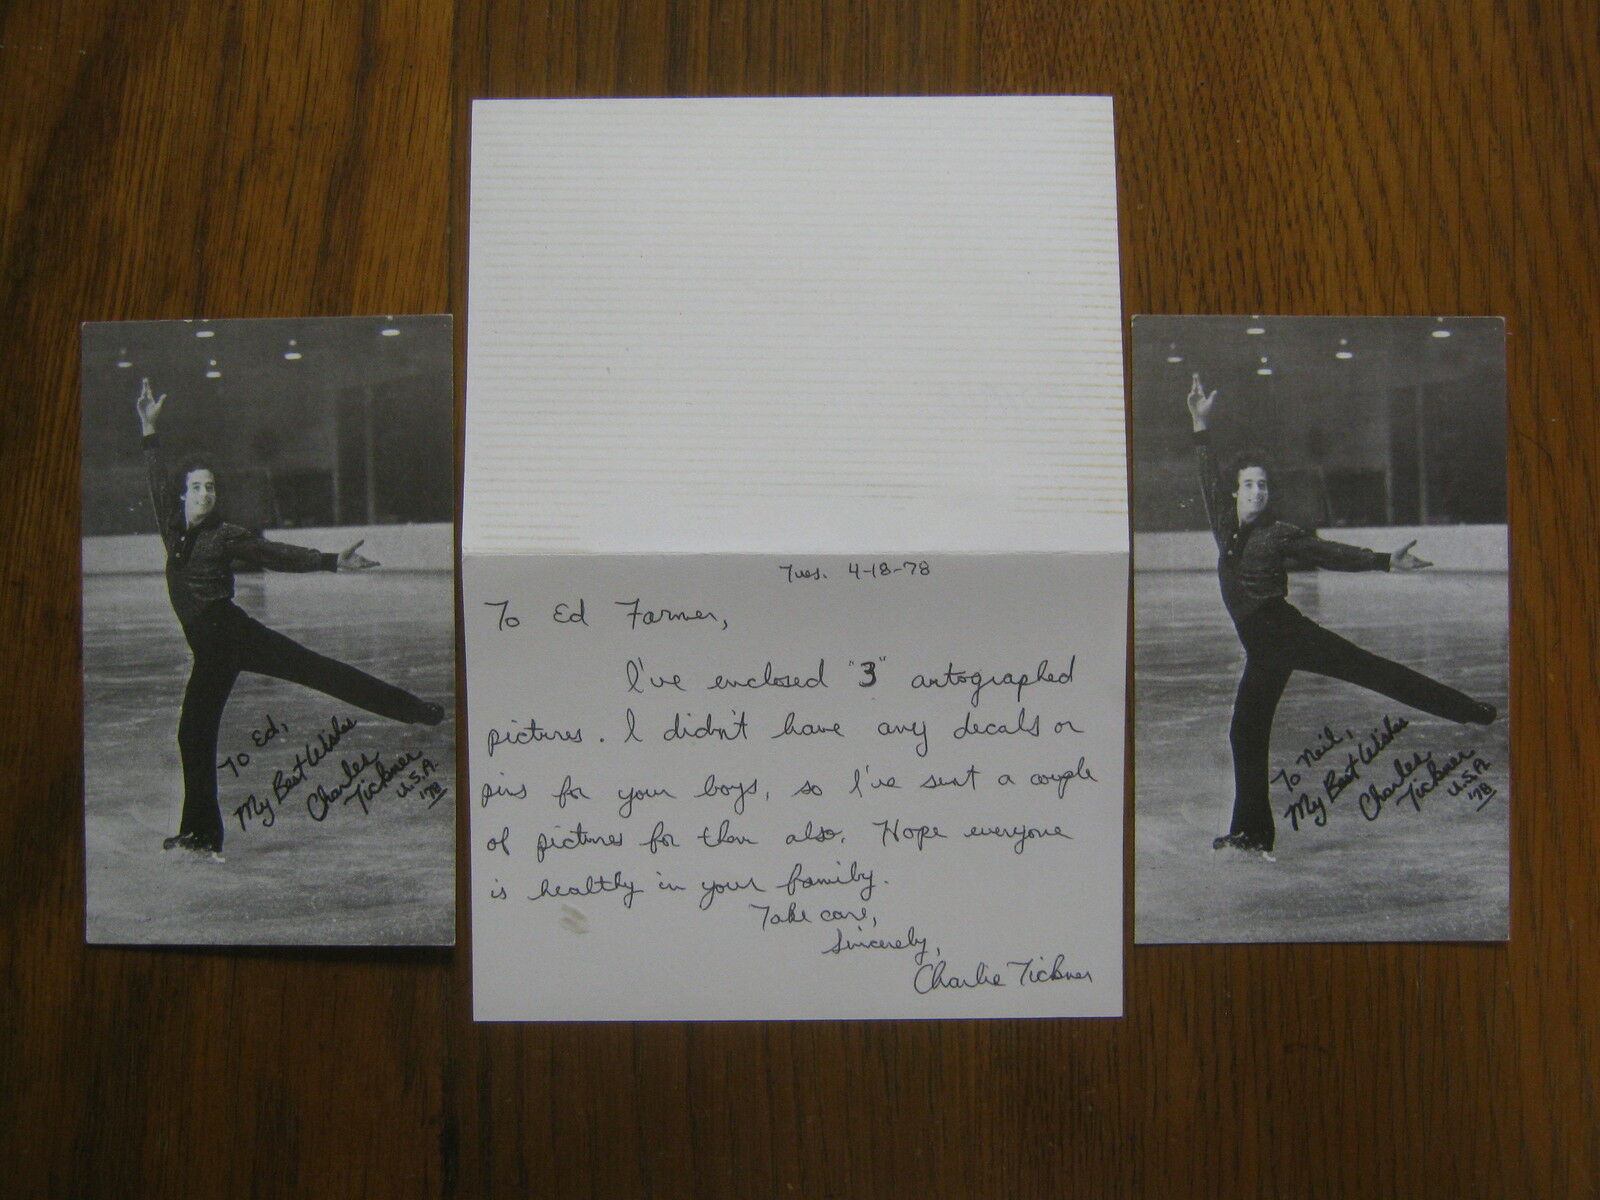 To Ed,
My Best Wishes
Charles
Tickner
U.S.A.
'78
Tues. 4-18-78
To Ed Farmer,
I've enclosed "3" autographed
pictures. I didn't have any decals or
pins for your boys, so I've sent a couple
of pictures for them also. Hope everyone
is healthy in your family.
Take care,
Sincerely,
Charlie Tickner
To Neil,
My Best Wishes
Charles
Tickner
U.S.A.
'78